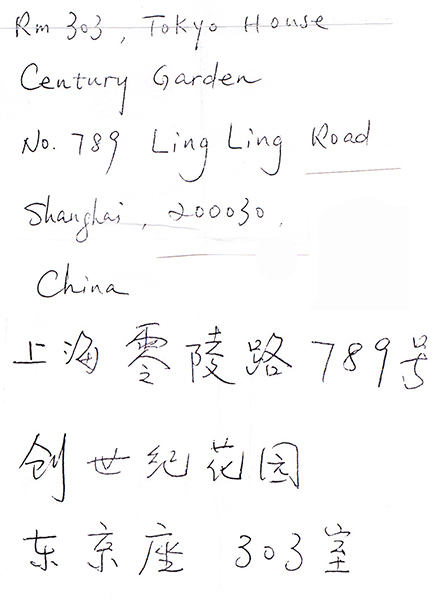 Rm 303, Tokyo House
Century Garden
No. 789 Ling Ling Road
Shanghai, 200030,
China
上海零陵路789号
创世纪花园
东京座 303室